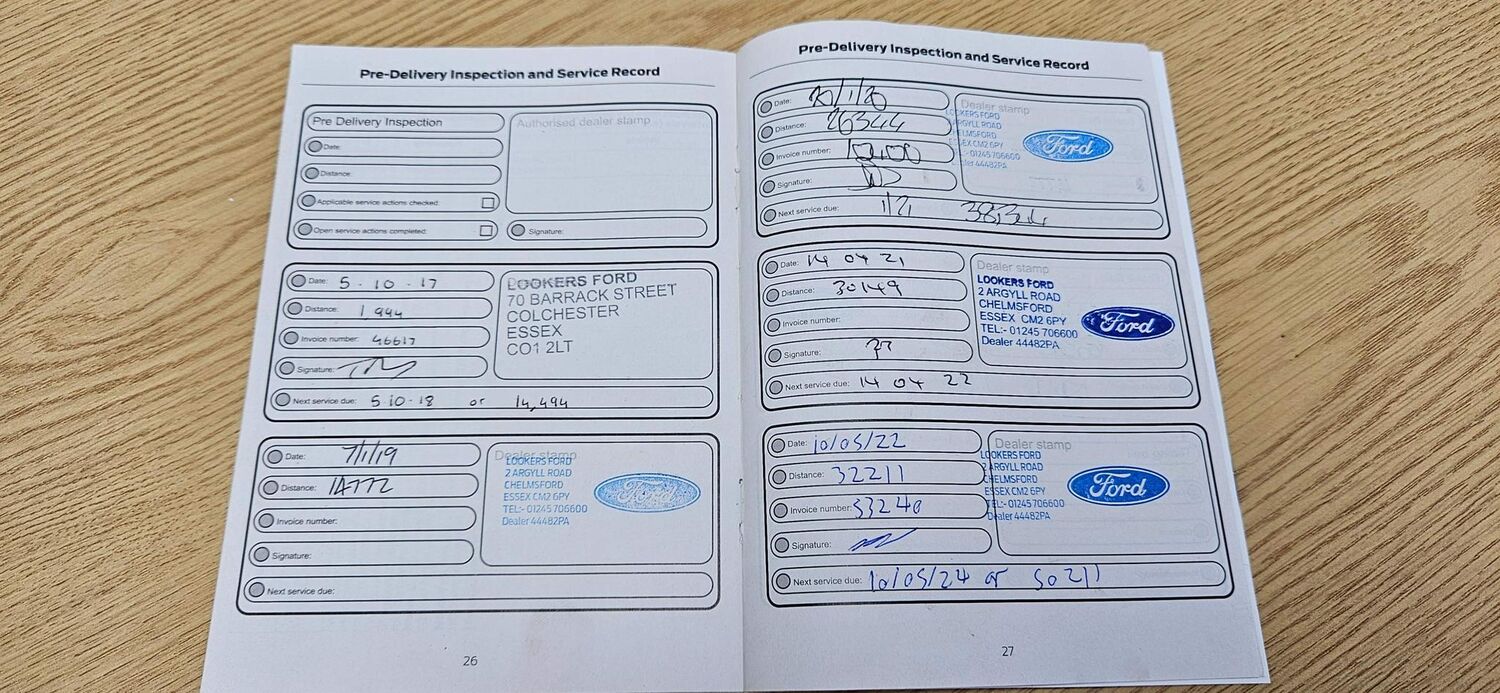 Pre-Delivery Inspection and Service Record
Pre Delivery Inspection
Authorised dealer stamp
Date:
Distance:
Applicable service actions checked:
Open service actions completed:
Signature:
Date: 5 - 10 - 17
Distance: 1,944
Invoice number: 46617
Signature:
Next service due: 5 10 - 18 or 14,494
LOOKERS FORD
70 BARRACK STREET
COLCHESTER
ESSEX
CO1 2LT
Date: 7/1/19
Distance:
Invoice number:
Signature:
Next service due:
Dealer stamp
LOOKERS FORD
2 ARGYLL ROAD
CHELMSFORD
ESSEX CM2 6PY
TEL:- 01245 706600
Dealer 44482PA
Ford
26
Pre-Delivery Inspection and Service Record
Date: 20/1/20
Distance: 26344
Invoice number:
Signature:
Next service due: 1/21
Dealer stamp
LOOKERS FORD
ARGYLL ROAD
CHELMSFORD
ESSEX CM2 6PY
TEL:- 01245 706600
Dealer 44482PA
Ford
Date: 14 04 21
Distance: 30149
Invoice number:
Signature:
Next service due: 14 04 22
Dealer stamp
LOOKERS FORD
2 ARGYLL ROAD
CHELMSFORD
ESSEX CM2 6PY
TEL:- 01245 706600
Dealer 44482PA
Ford
Date: 10/05/22
Distance: 32211
Invoice number: 53240
Signature:
Next service due: 10/05/24 or 50211
Dealer stamp
LOOKERS FORD
2 ARGYLL ROAD
CHELMSFORD
ESSEX CM2 6PY
TEL:- 01245 706600
Dealer 44482PA
Ford
27